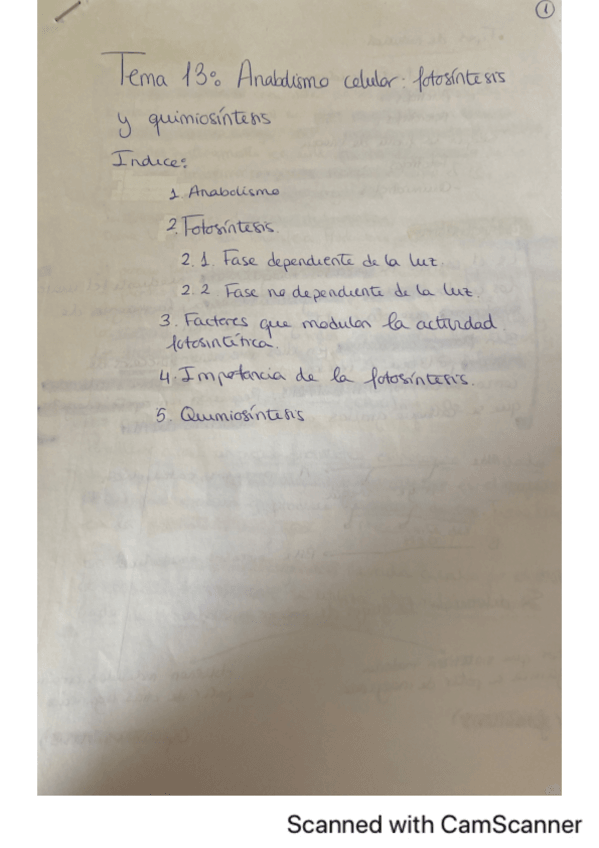 1
Tema 13: Anabolismo celular: fotosíntesis
y quimiosíntesis
Indice:
1. Anabolismo
2. Fotosíntesis.
2.1. Fase dependiente de la luz.
2.2 Fase no dependiente de la luz.
3. Factores que modulan la actividad
fotosintética.
4. Importancia de la fotosíntesis.
5. Quimiosíntesis
Scanned with CamScanner